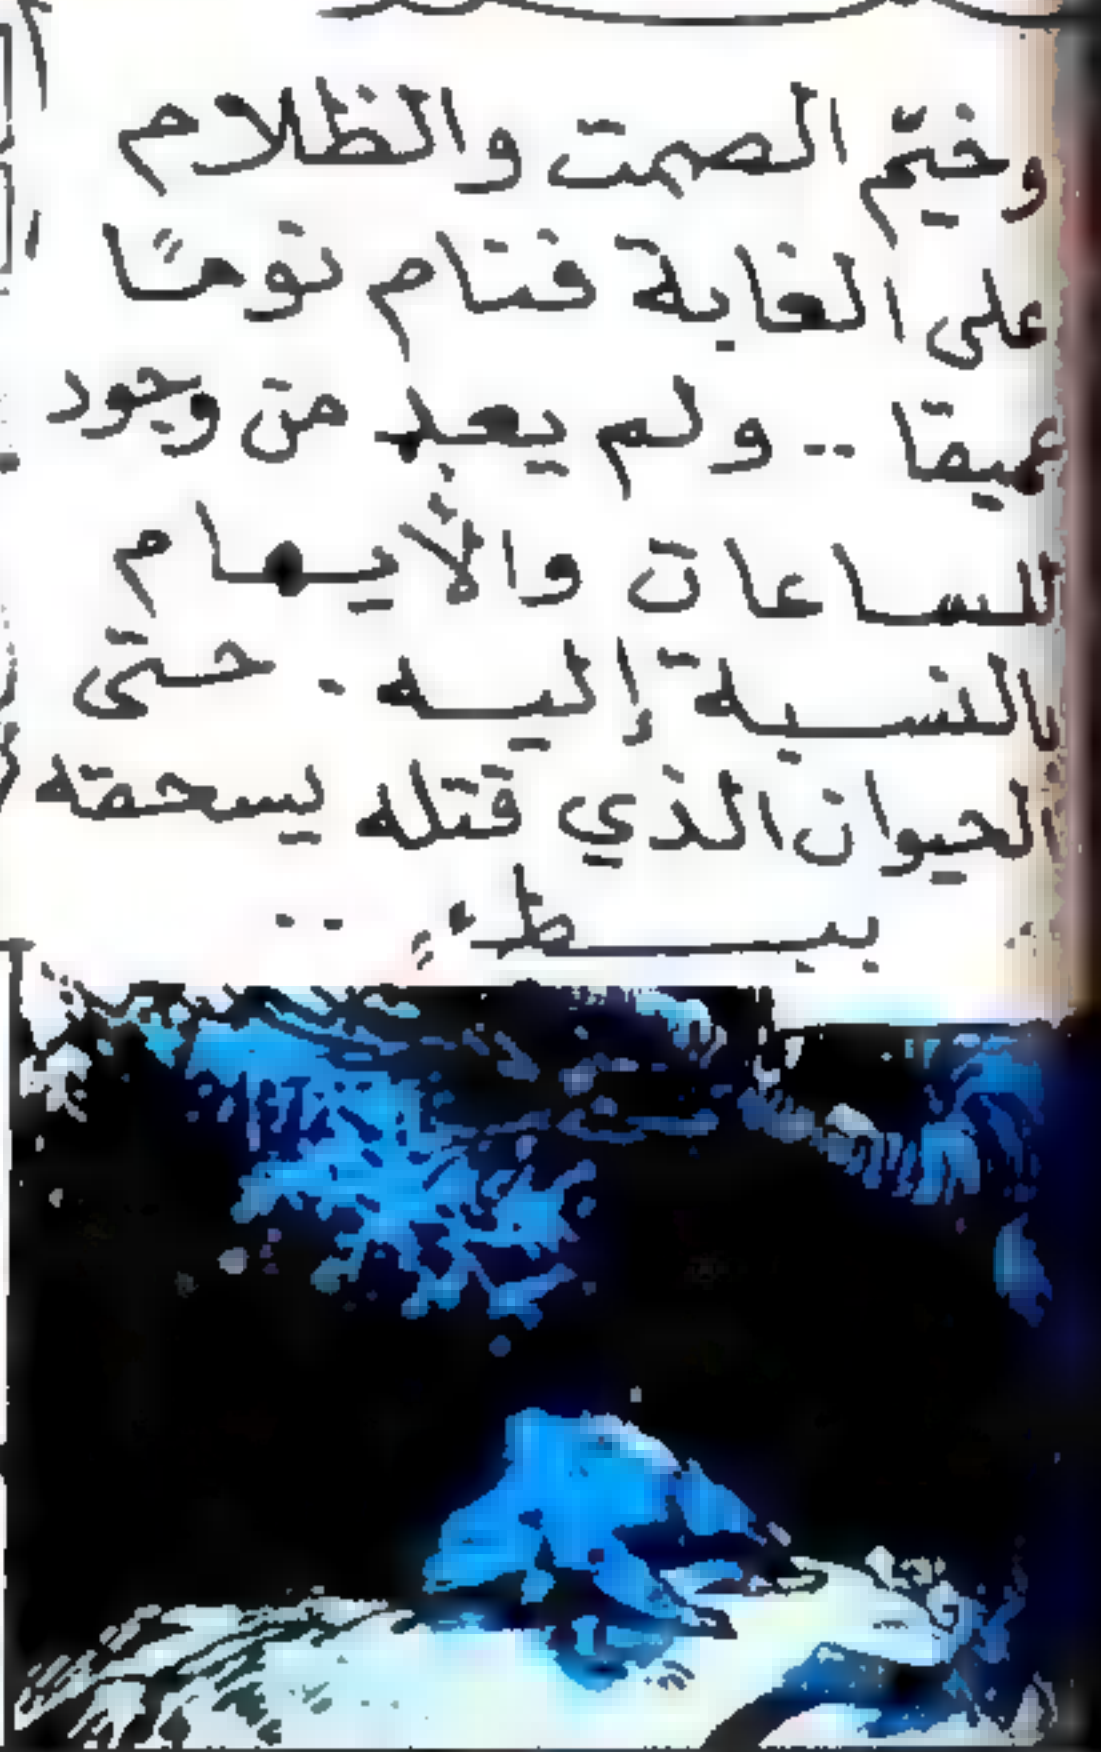 وخيّم الصمت والظلام
على الغابة فنام نومًا
عميقا .. ولم يعد من وجود
للساعات والأيام
بالنسبة إليه . حتى
الحيوان الذي قتله يسحقه
ببطءٍ ..